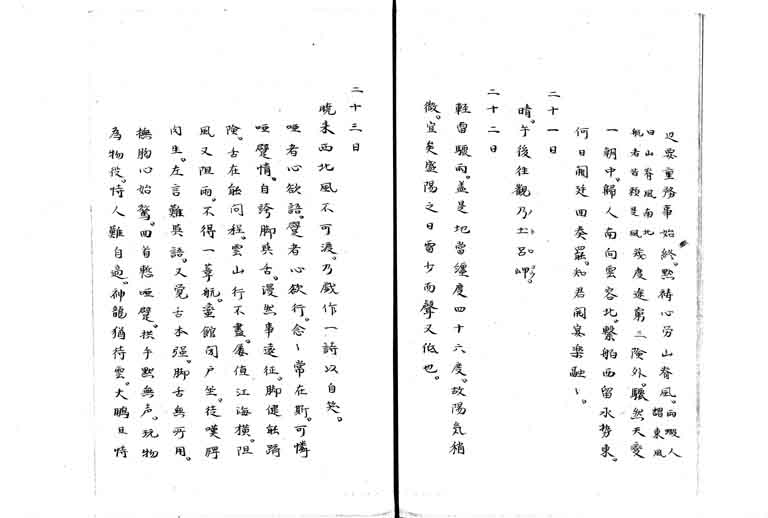 辺要重務事始終。黙禱心労山脊風。
西蝦人謂東風曰山脊風南北航者皆頼是風
幾度進窮三険外。驟然天変
一朝中。帰人南向雲容北。繋船西留水勢東。
何日闕廷回奏罷。知君開宴楽融々。
二十一日
晴。午後往観乃土呂岬。
二十二日
軽雷驟雨。蓋是地当纏度四十六度。故陽気稍
微。宜矣盛陽之日雷少而声又低也。
二十三日
暁来西北風不可渡。乃戯作一詩以自笑。
唖者心欲語。躄者心欲行。念々常在斯。可憐
唖躄情。自誇脚与舌。漫然事遠征。脚健能踏
険。舌在能問程。雲山行不尽。屡値江海横。阻
風又阻雨。不得一葦航。童館閉戸坐。徒嘆髀
肉生。左言難与語。又覚舌本強。脚舌無所用。
撫胸心始驚。回首慙唖躄。拱手黙無声。玩物
為物役。恃人難自過。神龍猶待雲。大鵬且恃